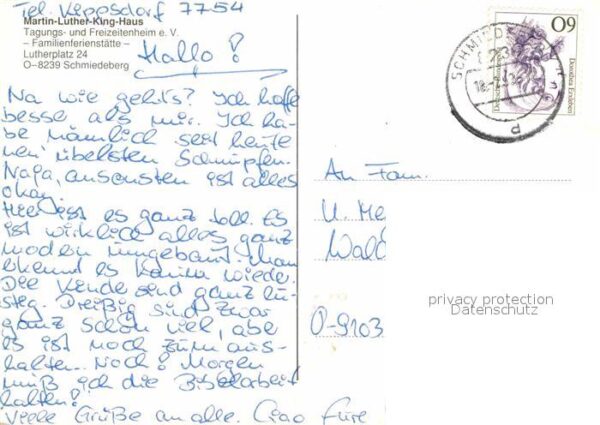 Tel. Kipsdorf 7754
Martin-Luther-King-Haus
Tagungs- und Freizeitenheim e. V.
– Familienferienstätte –
Lutherplatz 24
O–8239 Schmiedeberg
Hallo!
Na wie gehts? Ich hoffe
besse als mir. Ich ha-
be nämlich seit heute
nen übelsten Schnupfen.
Naja, ansonsten ist alles
okay.
Hier ist es ganz toll. Es
ist wirklich alles ganz
modern umgebaut. Man
erkennt es kaum wieder.
Die Kinder sind ganz lu-
stig. Dreißig sind zwar
ganz schön viel, aber
es ist noch zum aus-
halten. Noch! Morgen
muß ich die Bibelarbeit
halten!
Viele Grüße an alle. Ciao Eure
60
Dorothea Erxleben
Deutsche Bundespost
SCHMIEDE
An Fam.
U. Me
Wald
O-9103
privacy protection
Datenschutz